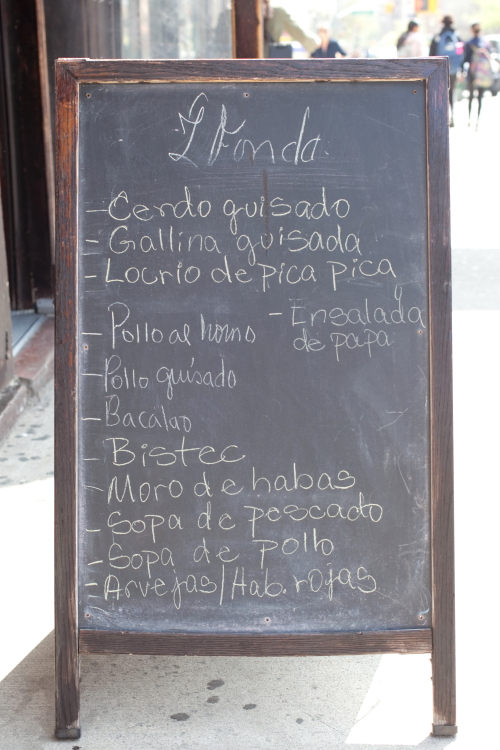 L Fonda.
-Cerdo guisado
-Gallina guisada
-Locrio de pica pica
-Pollo al horno
-Ensalada
de papa
-Pollo guisado
-Bacalao
-Bistec
-Moro de habas
-Sopa de pescado
-Sopa de pollo
-Arvejas/Hab. rojas